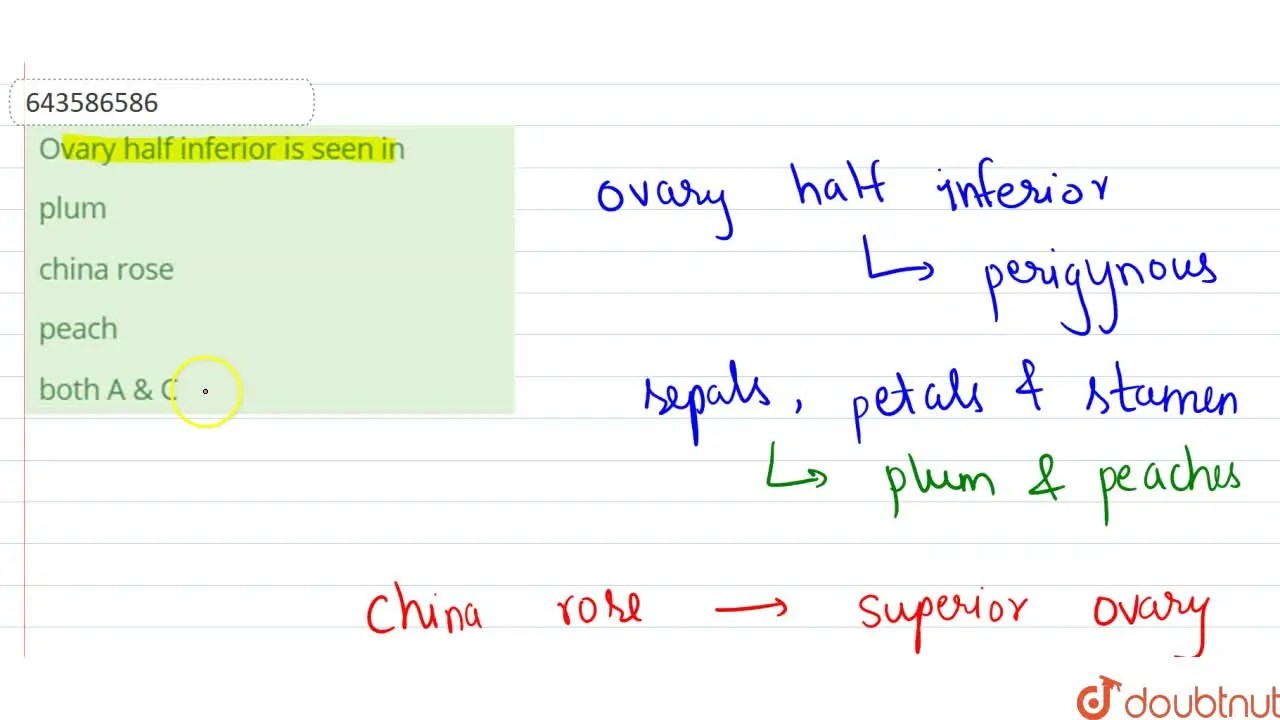 643586586
Ovary half inferior is seen in
plum
china rose
peach
both A & C
ovary half inferior
perigynous
sepals, petals & stamen
plum & peaches
China rose → superior ovary
doubtnut